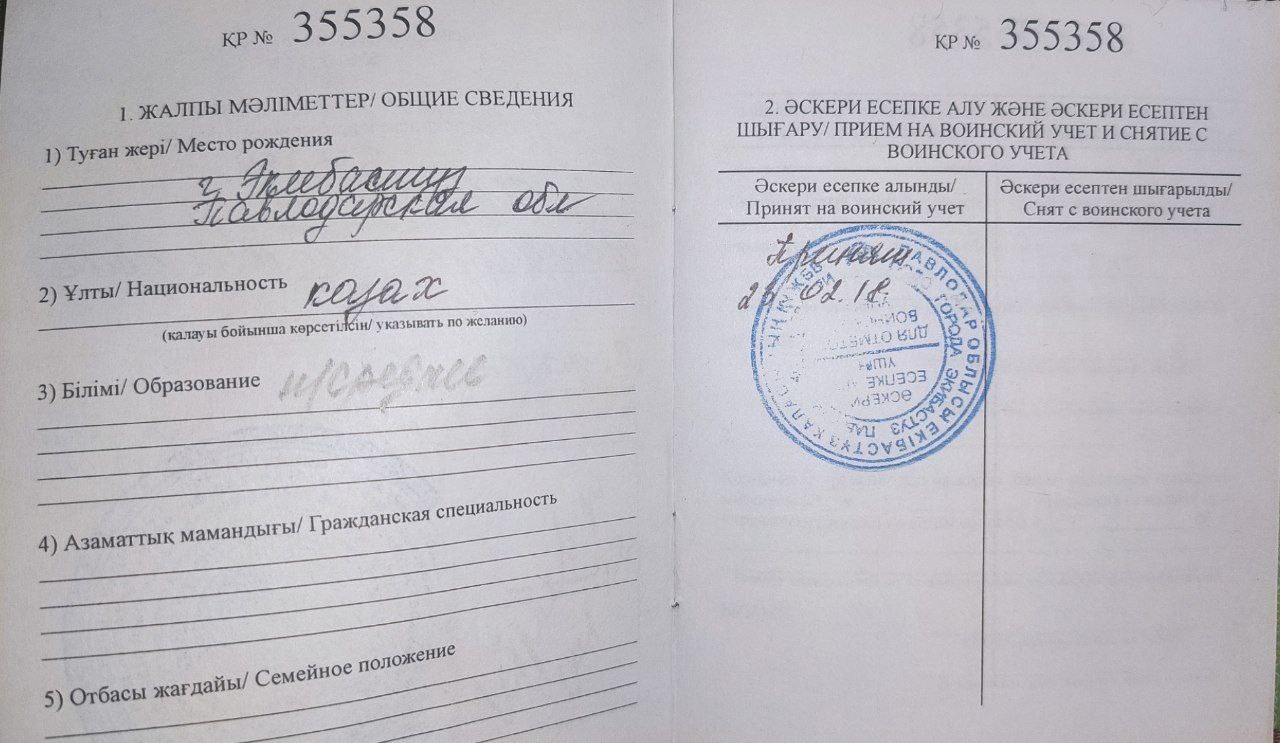 ҚР № 355358
1. ЖАЛПЫ МӘЛІМЕТТЕР/ ОБЩИЕ СВЕДЕНИЯ
1) Туған жері/ Место рождения
г. Экибастуз
Павлодарская обл
2) Ұлты/ Национальность казах
(қалауы бойынша көрсетілсін/ указывать по желанию)
3) Білімі/ Образование н/среднее
4) Азаматтық мамандығы/ Гражданская специальность
5) Отбасы жағдайы/ Семейное положение
ҚР № 355358
2. ӘСКЕРИ ЕСЕПКЕ АЛУ ЖӘНЕ ӘСКЕРИ ЕСЕПТЕН
ШЫҒАРУ/ ПРИЕМ НА ВОИНСКИЙ УЧЕТ И СНЯТИЕ С
ВОИНСКОГО УЧЕТА
Әскери есепке алынды/
Принят на воинский учет
Әскери есептен шығарылды/
Снят с воинского учета
Принят
23.02.18.
ПАВЛОДАР ОБЛЫСЫ ЕКІБАСТҰЗ
ГОРОДА ЭКИБАСТУЗ
ДЛЯ ОТМЕТО
ҮШІН
ЕСЕПКЕ
ӘСКЕРИ